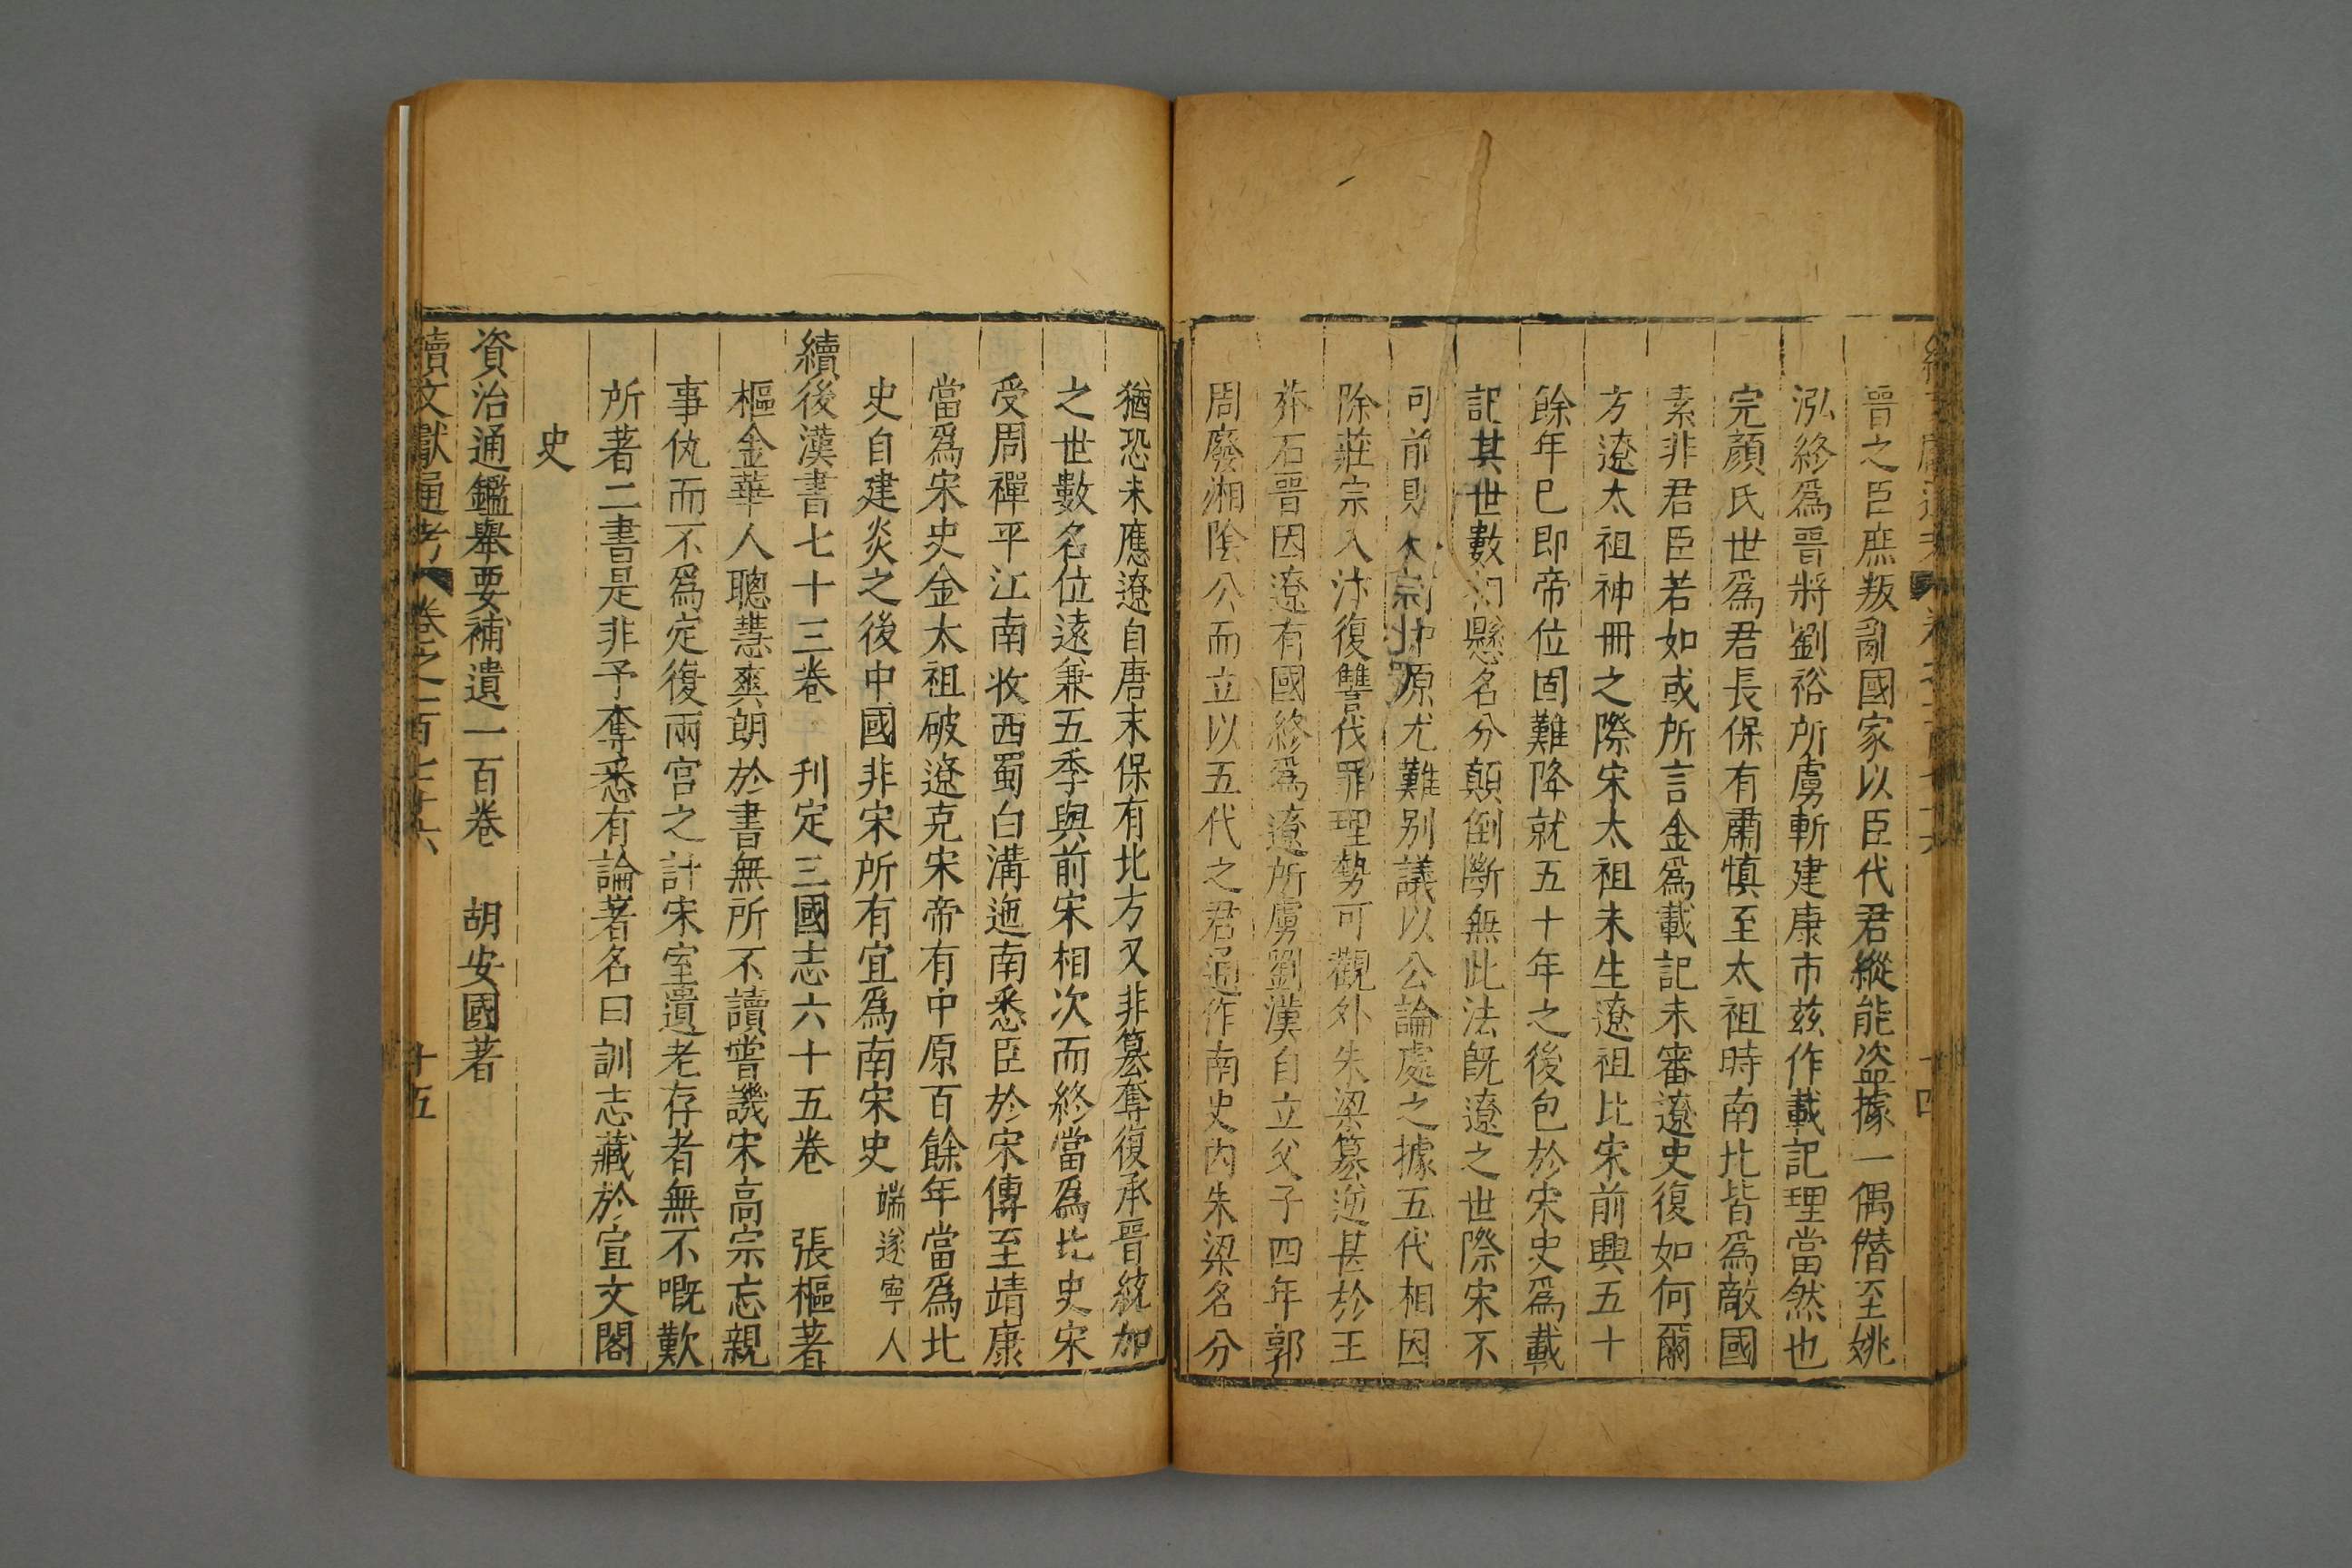 晉之臣庶叛亂國家以臣代君縱能盗據一偶僭至姚
泓終爲晉將劉裕所虜斬建康市兹作載記理當然也
完顏氏世爲君長保有肅慎至太祖時南北皆爲敵國
素非君臣若如或所言金爲載記未審遼史復如何爾
方遼太祖神冊之際宋太祖未生遼祖比宋前興五十
餘年已即帝位固難降就五十年之後包於宋史爲載
記其世數相懸名分顛倒斷無此法旣遼之世際宋不
可前則原尤難别議以公論處之據五代相因
除莊宗入汴復讐伐罪理勢可觀外朱梁篡逆甚於王
莽石晉因遼有國終爲遼所虜劉漢自立父子四年郭
周廢湘陰公而立以五代之君通作南史内朱梁名分
猶恐未應遼自唐末保有北方又非篡奪復承晉統加
之世數名位遠兼五季與前宋相次而終當爲北史宋
受周禪平江南收西蜀白溝迤南悉臣於宋傳至靖康
當爲宋史金太祖破遼克宋帝有中原百餘年當爲北
史自建炎之後中國非宋所有宜爲南宋史 端遂寧人
續後漢書七十三卷 刋定三國志六十五卷 張樞著
樞金華人聰慧爽朗於書無所不讀嘗譏宋高宗忘親
事仇而不爲定復兩宫之計宋室遺老存者無不嘅歎
所著二書是非予奪悉有論著名曰訓志藏於宣文閣
史
資治通鑑舉要補遺一百卷 胡安國著
續文獻通考 卷之一百七十六 十五